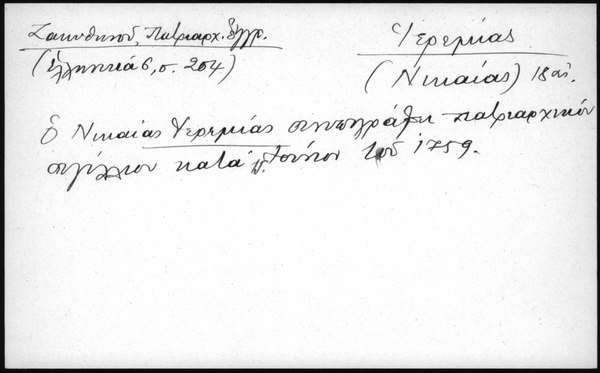 Ζακυθηνοῦ, Πατριαρχ. ἔγγρ.
(Ἑλληνικά 6, σ. 254)
Ἱερεμίας
(Νικαίας) 18 αἰ.
ὁ Νικαίας Ἱερεμίας συνυπογράφει πατριαρχικόν
σιγίλλιον κατά τ. Ἰούνιον τοῦ 1759.